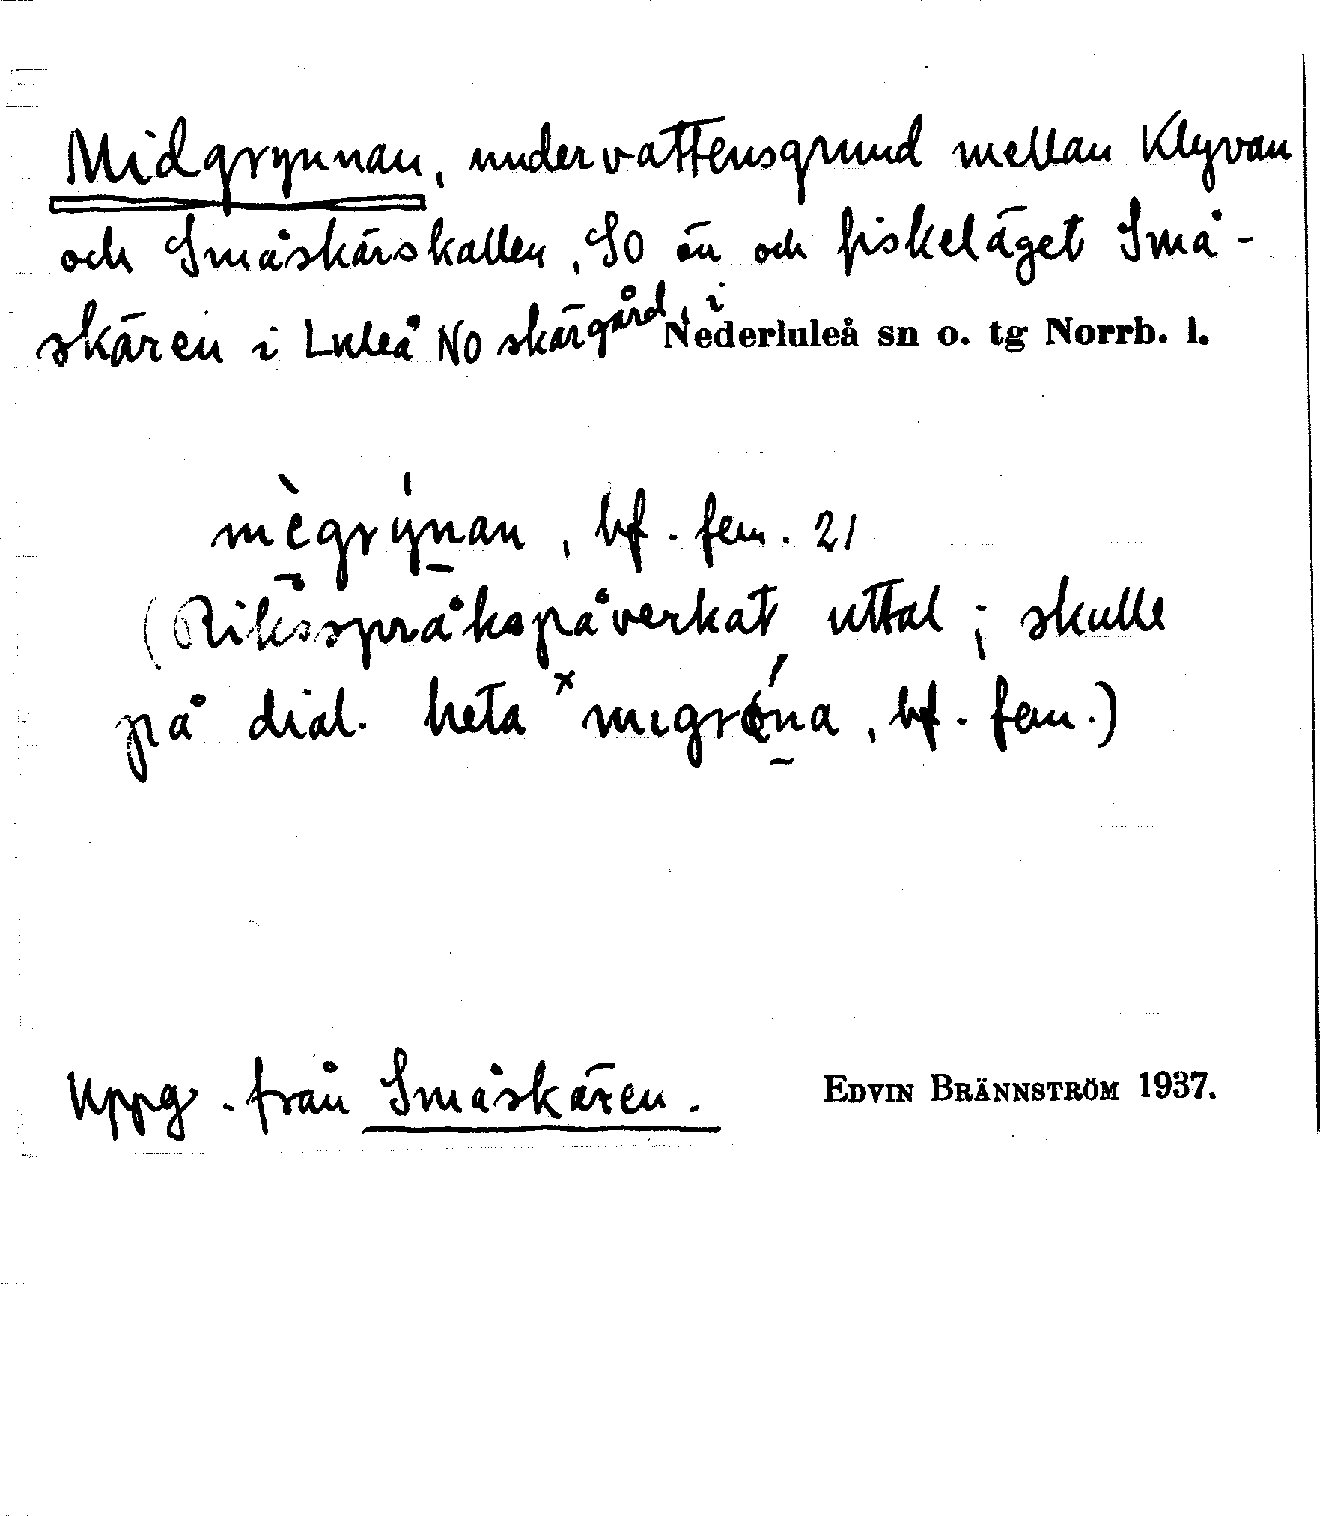 Midgrynnan, undervattensgrund mellan Klyvan
och Småskärskallen, SO ön och fiskeläget Små-
skären i Luleå NO skärgård, i Nederluleå sn o. tg Norrb. l.
mègrýnan, bf. fem. 21
(Riksspråkspåverkat uttal; skulle
på dial. heta ˣmigrǿna, bf. fem.)
Uppg. från Småskären. EDVIN BRÄNNSTRÖM 1937.